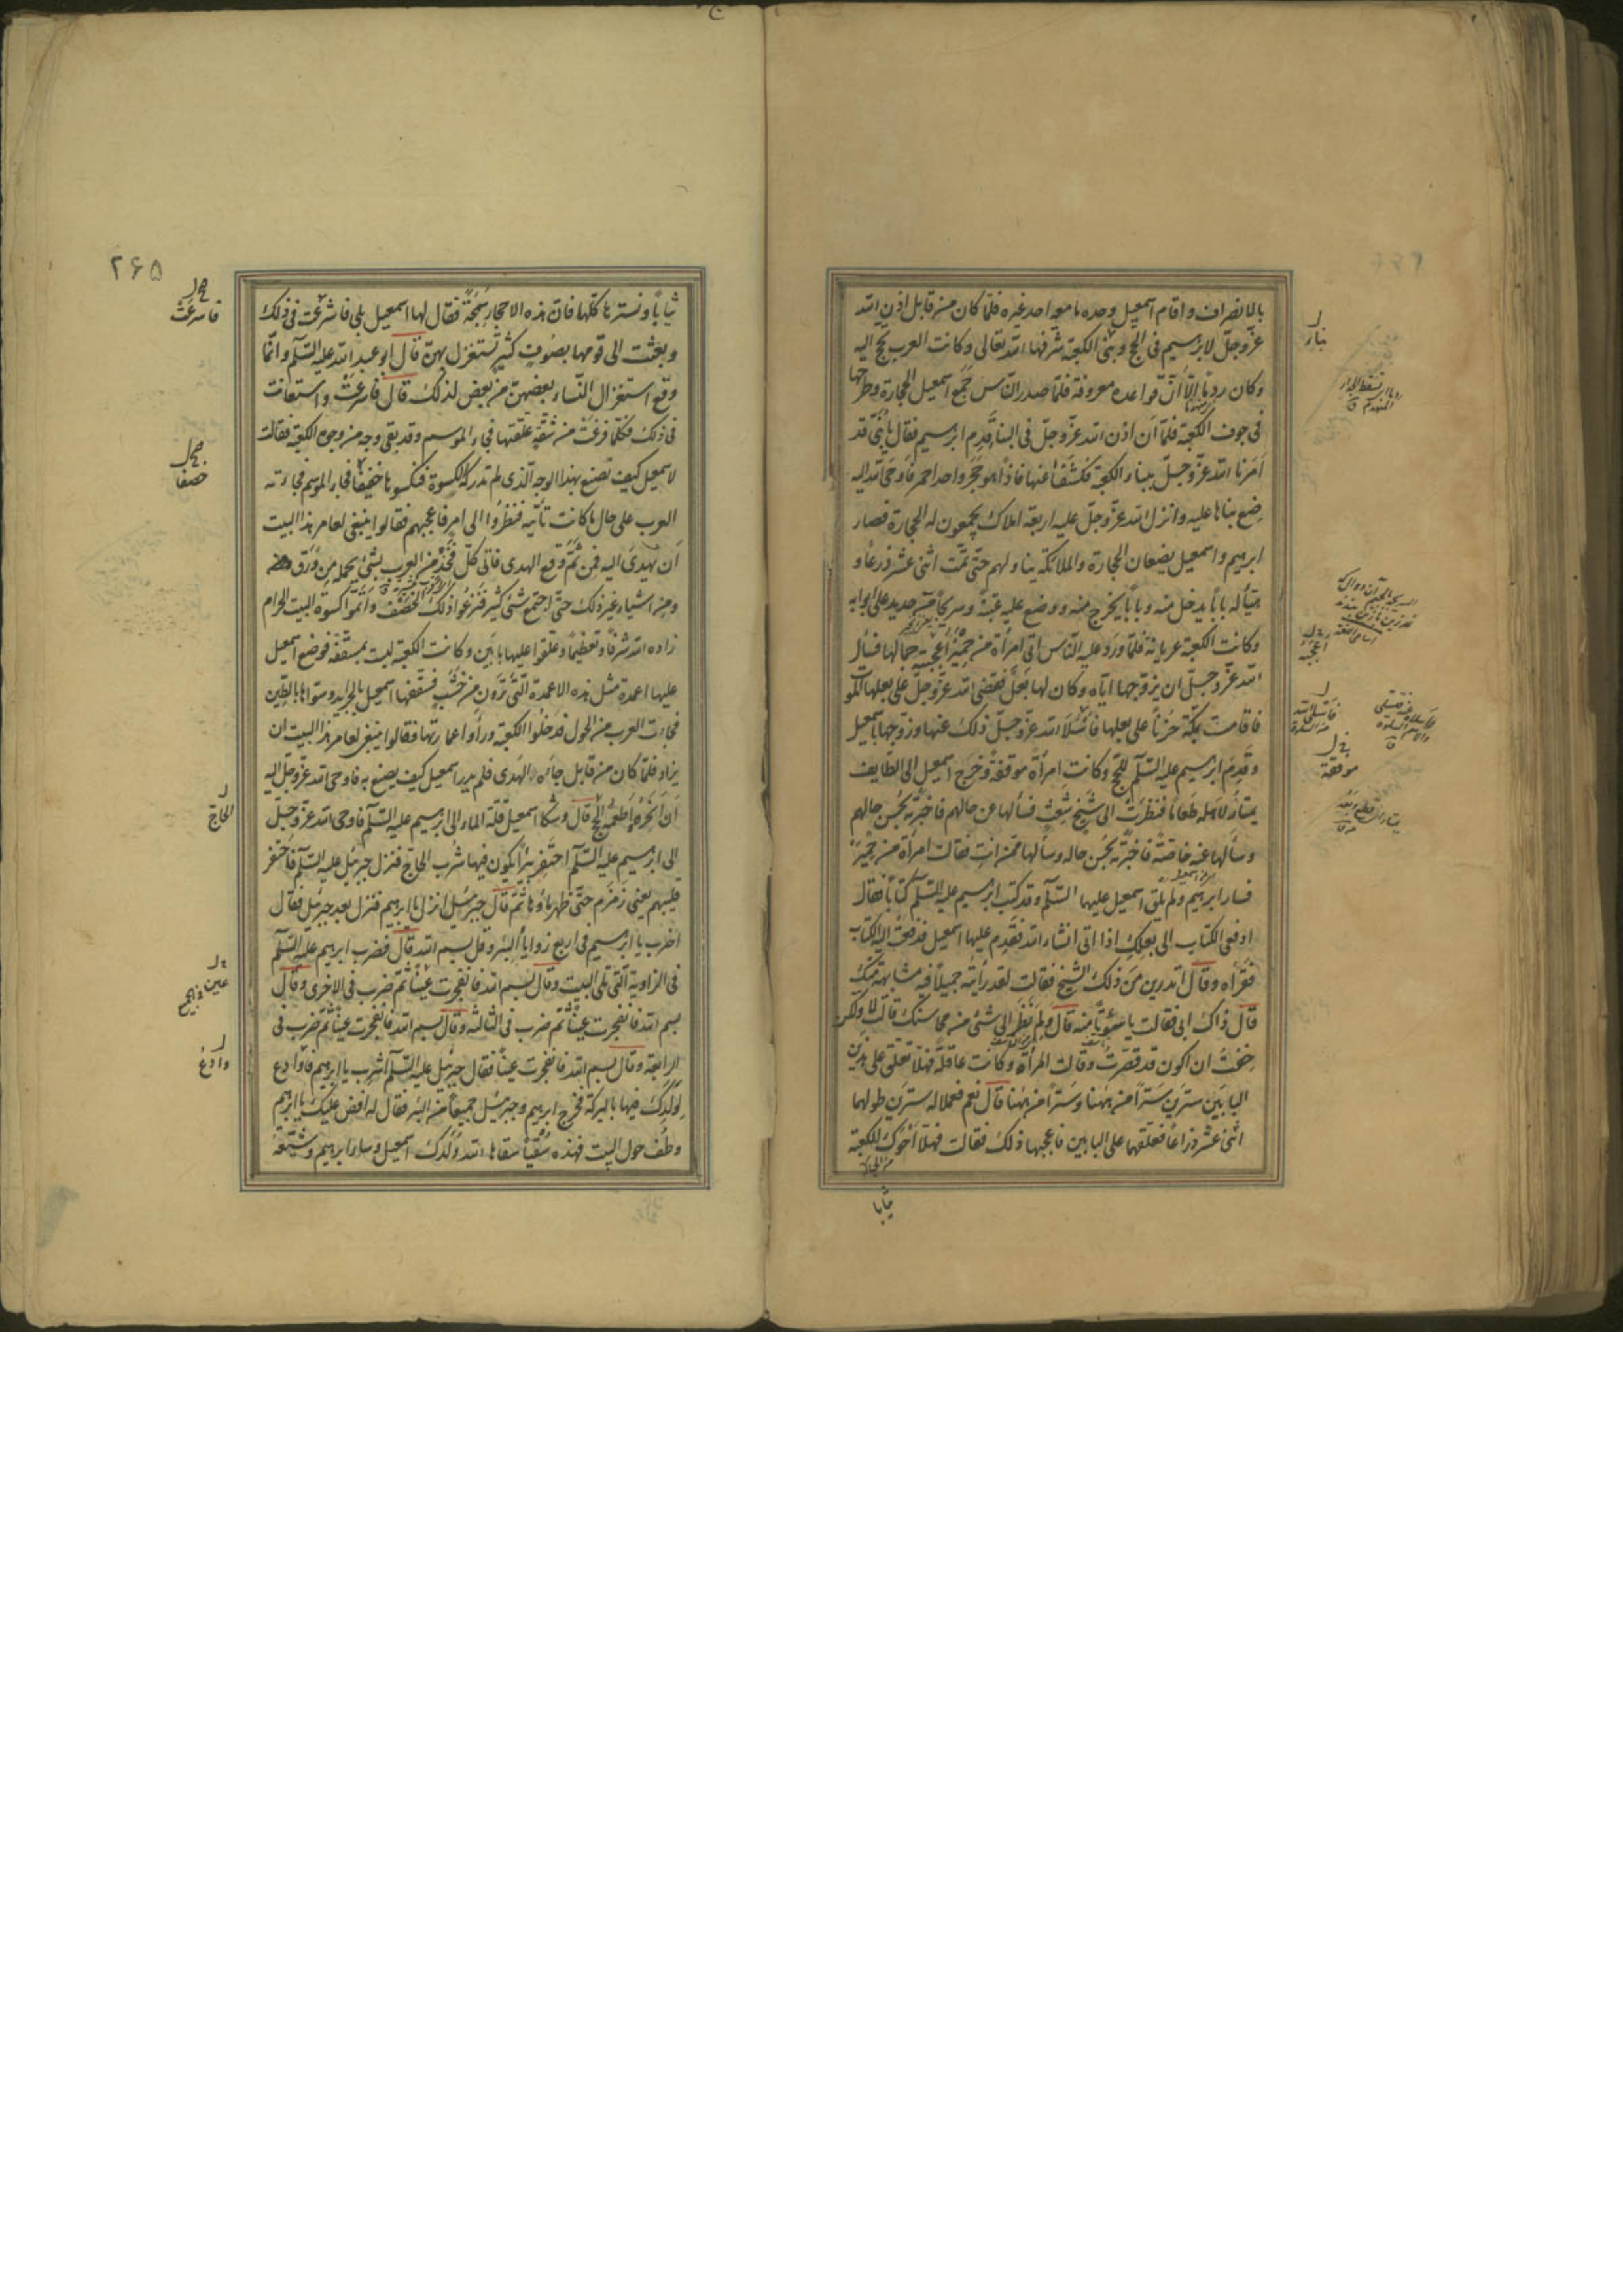 بالانصراف واقام اسمعیل وحده ما معه احد غیره فلمّا کان من قابل اذن الله
عزّ وجلّ لابرهیم فی الحج وبنی الکعبة شرفها الله تعالی وکانت العرب تحج الیه
وکان ردما الّا أنّ قواعده معروفة فلمّا صدر النّاس جمع اسمعیل الحجارة وطرحها
فی جوف الکعبة فلمّا أن اذن الله عزّ وجلّ فی البناء قدم ابرهیم فقال یا بُنیّ قد
أمرنا الله عزّ وجلّ ببناء الکعبة فکشفا عنها فاذا هو حجر واحد احمر فاوحی الله الیه
ضع بناءها علیه وانزل الله عزّ وجلّ علیه اربعة املاک یجمعون له الحجارة فصار
ابرهیم واسمعیل یضعان الحجارة والملائکة یناولهم حتّی تمّت اثنی عشر ذرعا و
هیّأ له باباً یدخل منه وباباً یخرج منه ووضع علیه عتبة وسریجا من حدید علی ابوابه
وکانت الکعبة عریانة فلمّا ورد علیه النّاس اتی امرأة من حمیر اعجبته جمالها فسأل
الله عزّ وجلّ ان یزوّجها ایّاه وکان لها بعل فقضی الله عزّ وجلّ علی بعلها الموت
فاقامت بمکّة حزنا علی بعلها فاسلا الله عزّ وجلّ ذلک عنها وزوجها باسمعیل
وقدم ابرهیم علیه السّلام للحج وکانت امرأة موفقة وخرج اسمعیل الی الطایف
یمتار لاهله طعاما فنظرت الی شیخ شعث فسألها عن حالهم فاخبرته بحسن حالهم
وسألها عنه خاصة فاخبرته بحسن حاله وسألها ممّن انت فقالت امرأة من حمیر
فسار ابرهیم ولم یلق اسمعیل علیهما السّلام وقد کتب ابرهیم علیه السّلام کتابا فقال
ادفعی الکتاب الی بعلک اذا اتی انشاء الله فقدم علیها اسمعیل فدفعت الیه الکتاب
فقرأه وقال اتدرین من ذلک الشیخ فقالت لقد رأیته جمیلا فیه مشابهة منک
قال ذاک ابی فقالت یا سوءتاً منه قال ولم نظر الی شئ من محاسنک قالت لا ولکن
خفت ان اکون قد قصّرت وقالت المرأة وکانت عاقلة فهلّا تعلّق علی هذین
البابین سترین سترا من ههنا وسترا من ههنا قال نعم فعملا له سترین طولهما
اثنی عشر ذراعا فعلّقهما علی البابین فاعجبها ذلک فقالت فهلّا احوک للکعبة
ثیابا
۲۶۵
ثیاباً ونسترها کلّها فان هذه الاحجار سمجة فقال لها اسمعیل بلی فاسرعت فی ذلک
وبعثت الی قومها بصوف کثیر تستغزل بهنّ قال ابو عبد الله علیه السّلام وانّما
وقع استغزال النّساء بعضهنّ من بعض لذلک قال فاسرعت واستعانت
فی ذلک فکلّما فرغت من شقّة علّقتها فجاء الموسم وقد بقی وجه من وجوه الکعبة فقالت
لاسمعیل کیف نصنع بهذا الوجه الّذی لم تدرکه الکسوة فنکسوها خفیفا فجاء الموسم فجاءته
العرب علی حال ما کانت تأتیه فنظروا الی امر فاعجبهم فقالوا ینبغی لعامر هذا البیت
أن یهدی الیه فمن ثمّ وقع الهدی فاتی کلّ فخذ من العرب بشئ یحمله من ورق
ومن اشیاء غیر ذلک حتّی اجتمع شئ کثیر فنزعوا ذلک الخصف واتمّوا کسوة البیت الحرام
زاده الله شرفا وتعظیما وعلّقوا علیها بابین وکانت الکعبة لیست بمسقّفة فوضع اسمعیل
علیها اعمدة مثل هذه الاعمدة الّتی ترون من خشب فسقّفها اسمعیل بالجراید وسوّاها بالطّین
فجاءت العرب من الحول فدخلوا الکعبة ورأوا عمارتها فقالوا ینبغی لعامر هذا البیت ان
یزاد فلمّا کان من قابل جاءه الهدی فلم یدر اسمعیل کیف یصنع به فاوحی الله عزّ وجلّ الیه
أن انحره واطعمه الحج قال وشکا اسمعیل قلّة الماء الی ابرهیم علیه السّلام فاوحی الله عزّ وجلّ
الی ابرهیم علیه السّلام احتفر بئرا یکون فیها شرب الحاجّ فنزل جبرئیل علیه السّلام فاحتفر
قلیبهم یعنی زمزم حتّی ظهر ماؤها ثمّ قال جبرئیل انزل یا ابرهیم فنزل بعد جبرئیل فقال
اضرب یا ابرهیم فی اربع زوایا البئر وقل بسم الله قال فضرب ابرهیم علیه السّلام
فی الزاویة الّتی تلی البیت وقال بسم الله فانفجرت عیناً ثمّ ضرب فی الاخری وقال
بسم الله فانفجرت عیناً ثمّ ضرب فی الثالثة وقال بسم الله فانفجرت عیناً ثمّ ضرب فی
الرابعة وقال بسم الله فانفجرت عیناً فقال جبرئیل علیه السّلام اشرب یا ابرهیم وادع
لولدک فیها بالبرکة فخرج ابرهیم وجبرئیل جمیعاً من البئر فقال له افض علیک یا ابرهیم
وطف حول البیت فهذه سقیا سقاها الله ولدک اسمعیل وسار ابرهیم وشیّعه
فاسرعت
خصفا
الحاج
عین
وادع